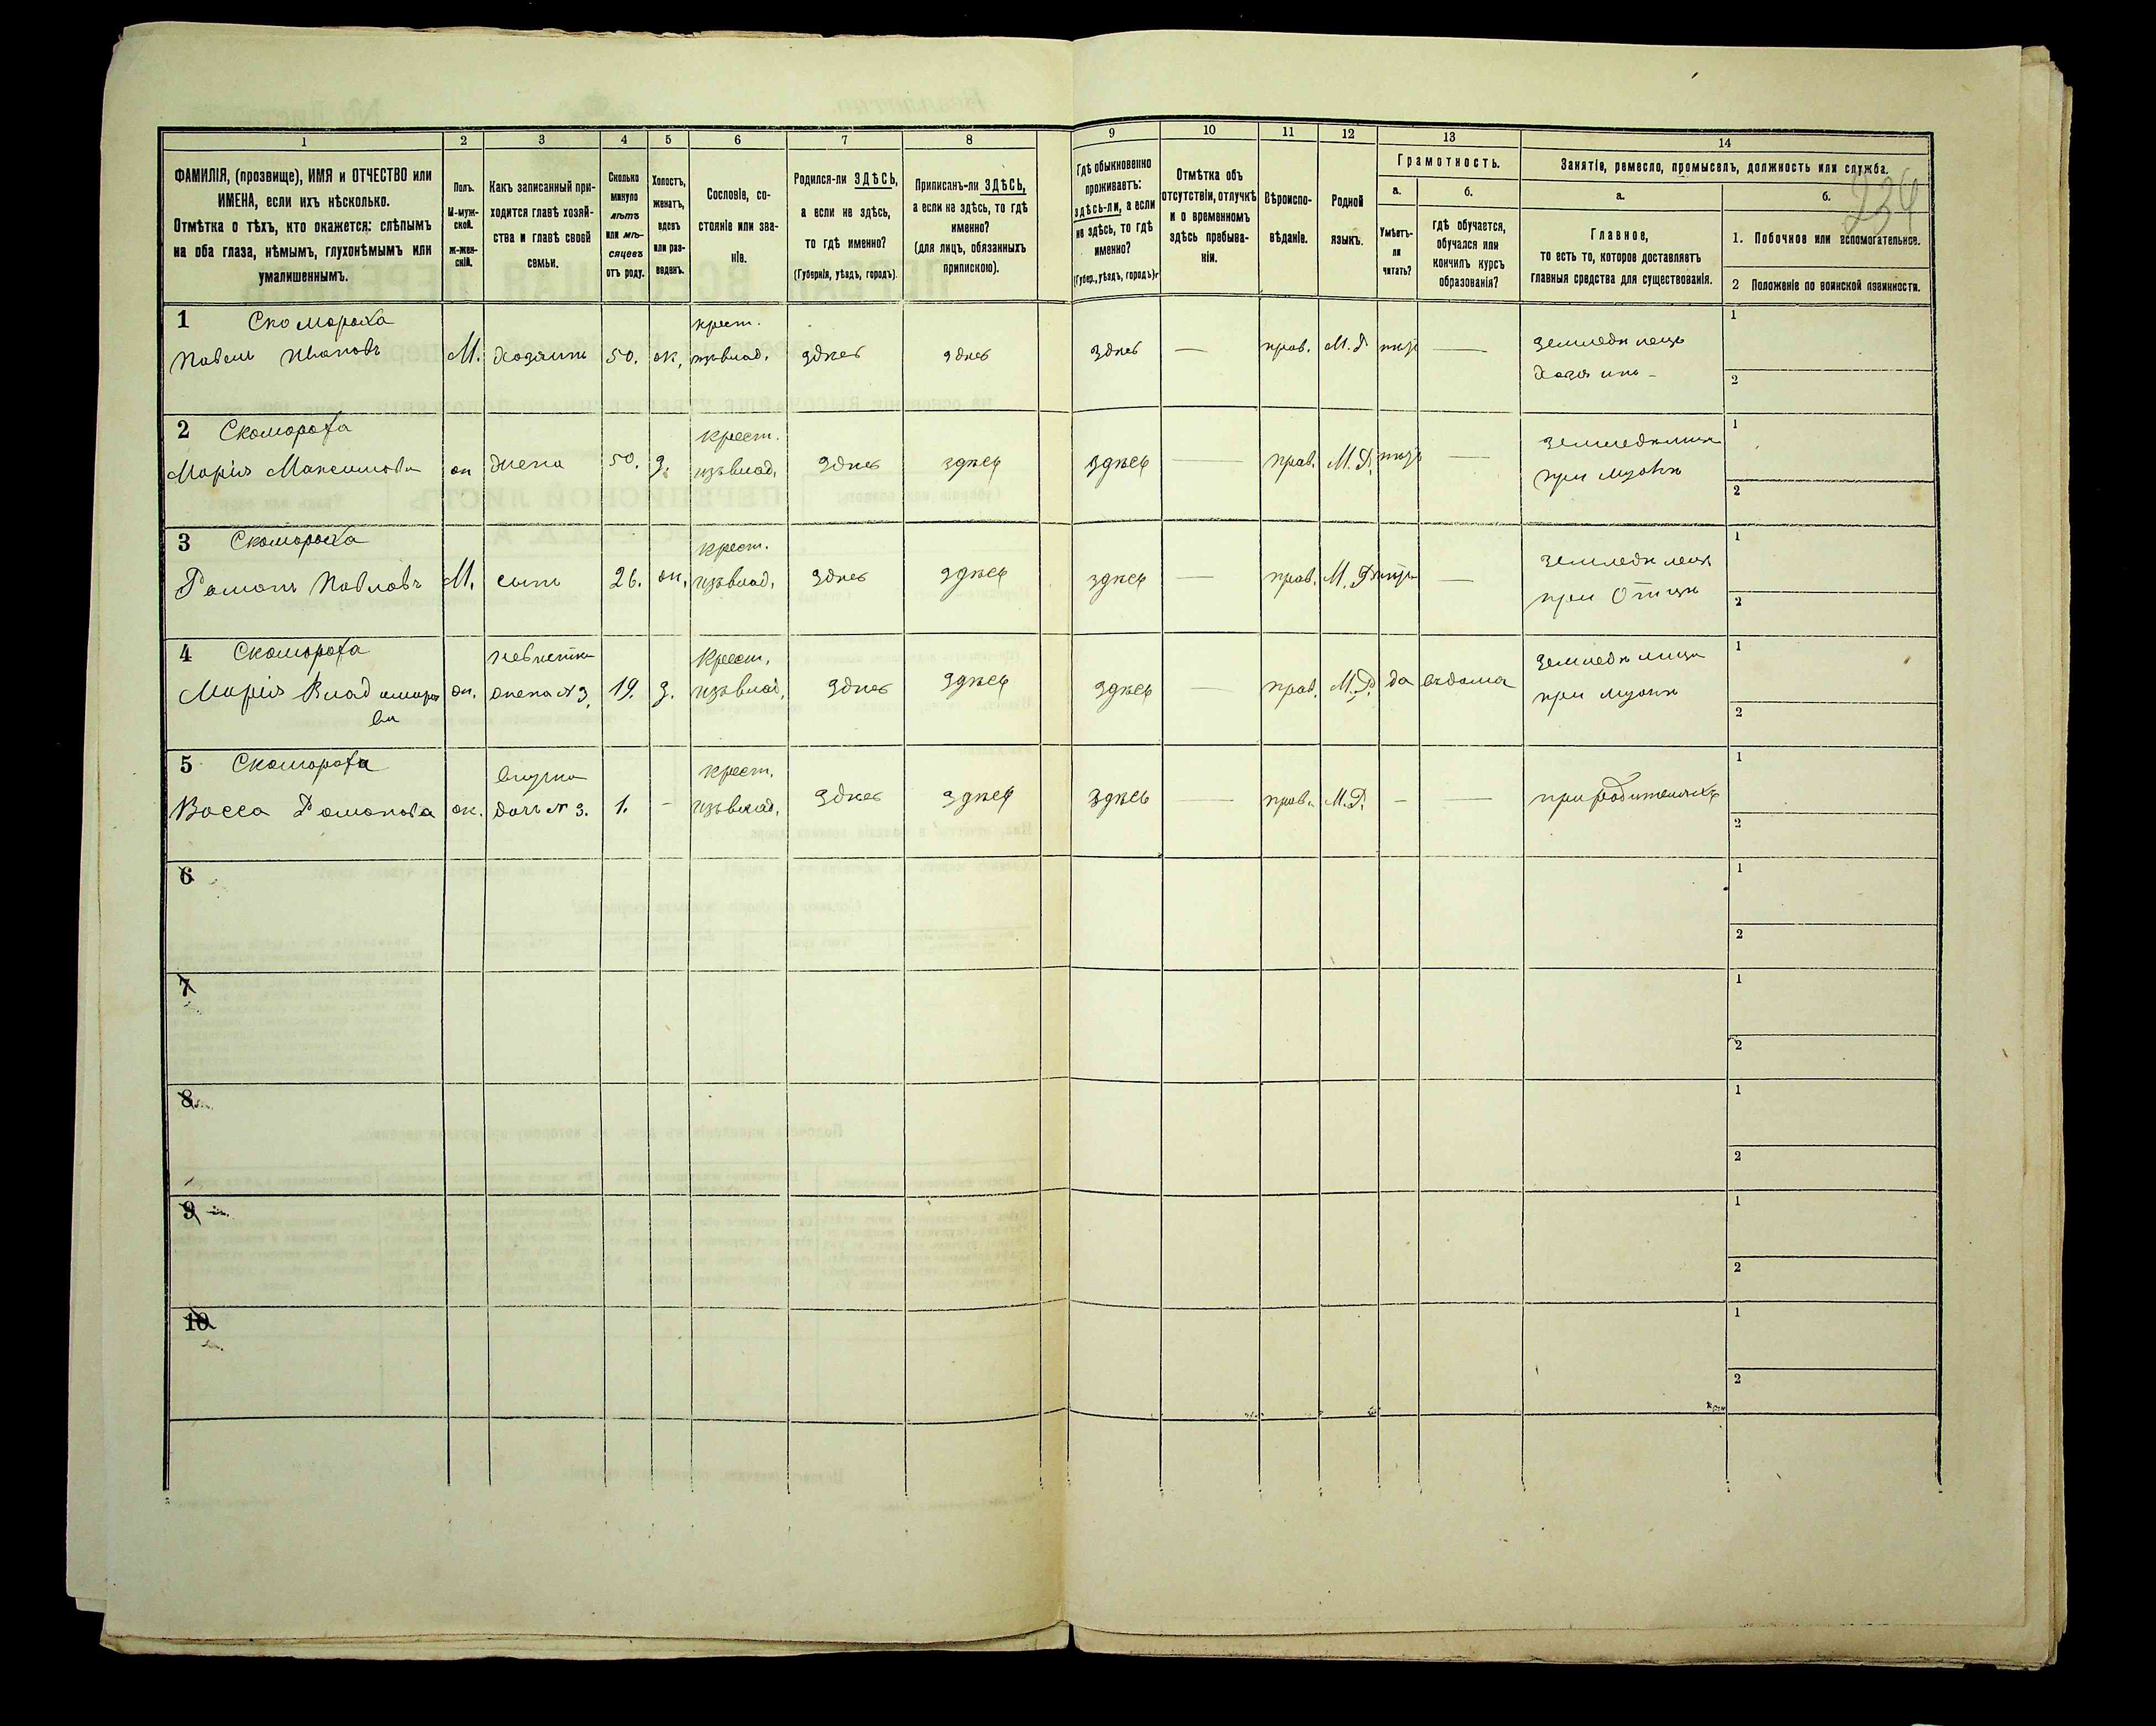 234
1
2
3
4
5
6
7
8
9
10
11
12
13
14
ФАМИЛІЯ, (прозвище), ИМЯ и ОТЧЕСТВО или
ИМЕНА, если ихъ нѣсколько.
Отмѣтка о тѣхъ, кто окажется: слѣпымъ
на оба глаза, нѣмымъ, глухонѣмымъ или
умалишеннымъ.
Полъ.
М-муж-
ской.
Ж-жен-
скій.
Какъ записанный при-
ходится главѣ хозяй-
ства и главѣ своей
семьи.
Сколько
минуло
лѣтъ
или мѣ-
сяцевъ
отъ роду.
Холостъ,
женатъ,
вдовъ
или раз-
веденъ.
Сословіе, со-
стояніе или зва-
ніе.
Родился-ли ЗДѢСЬ,
а если не здѣсь,
то гдѣ именно?
(Губернія, уѣздъ, городъ).
Приписанъ-ли ЗДѢСЬ,
а если не здѣсь, то гдѣ
именно?
(для лицъ, обязанныхъ
припискою).
Гдѣ обыкновенно
проживаетъ:
здѣсь-ли, а если
не здѣсь, то гдѣ
именно?
(Губер., уѣздъ, городъ)
Отмѣтка объ
отсутствіи, отлучкѣ
и о временномъ
здѣсь пребыва-
ніи.
Вѣроиспо-
вѣданіе.
Родной
языкъ.
Грамотность.
а.
Умѣетъ-
ли
читать?
б.
гдѣ обучается,
обучался или
кончилъ курсъ
образованія?
Занятіе, ремесло, промыселъ, должность или служба.
а.
Главное,
то есть то, которое доставляетъ
главныя средства для существованія.
б.
1. Побочное или вспомогательное.
2 Положеніе по воинской повинности.
1 Скомороха крест. 1
Павелъ Ивановъ М. хозяинъ 50. ж. изъ влад. здѣсь здѣсь здѣсь — прав. М.Р. нѣтъ — земледѣлецъ
хозяинъ - 2
2 Скомороха крест. 1
Марія Максимова ж жена 50. з. изъ влад. здѣсь здѣсь здѣсь — прав. М.Р. нѣтъ — земледѣлица
при мужѣ 2
3 Скомороха крест. 1
Романъ Павловъ М. сынъ 26. ж. изъ влад. здѣсь здѣсь здѣсь — прав. М.Р. нѣтъ — земледѣлецъ
при Отцѣ 2
4 Скомороха невѣстка Крест. 1
Марія Владимиро ж. жена №3. 19. з. изъ влад. здѣсь здѣсь здѣсь — прав. М.Р. да въ дома земледѣлица
ва при мужѣ 2
5 Скомороха внучка крест. 1
Васса Романова ж. дочь № 3. 1. - изъ влад. здѣсь здѣсь здѣсь — прав. М.Р. - — при родителяхъ
2
6 1
2
7 1
2
8 1
2
9 1
2
10 1
2